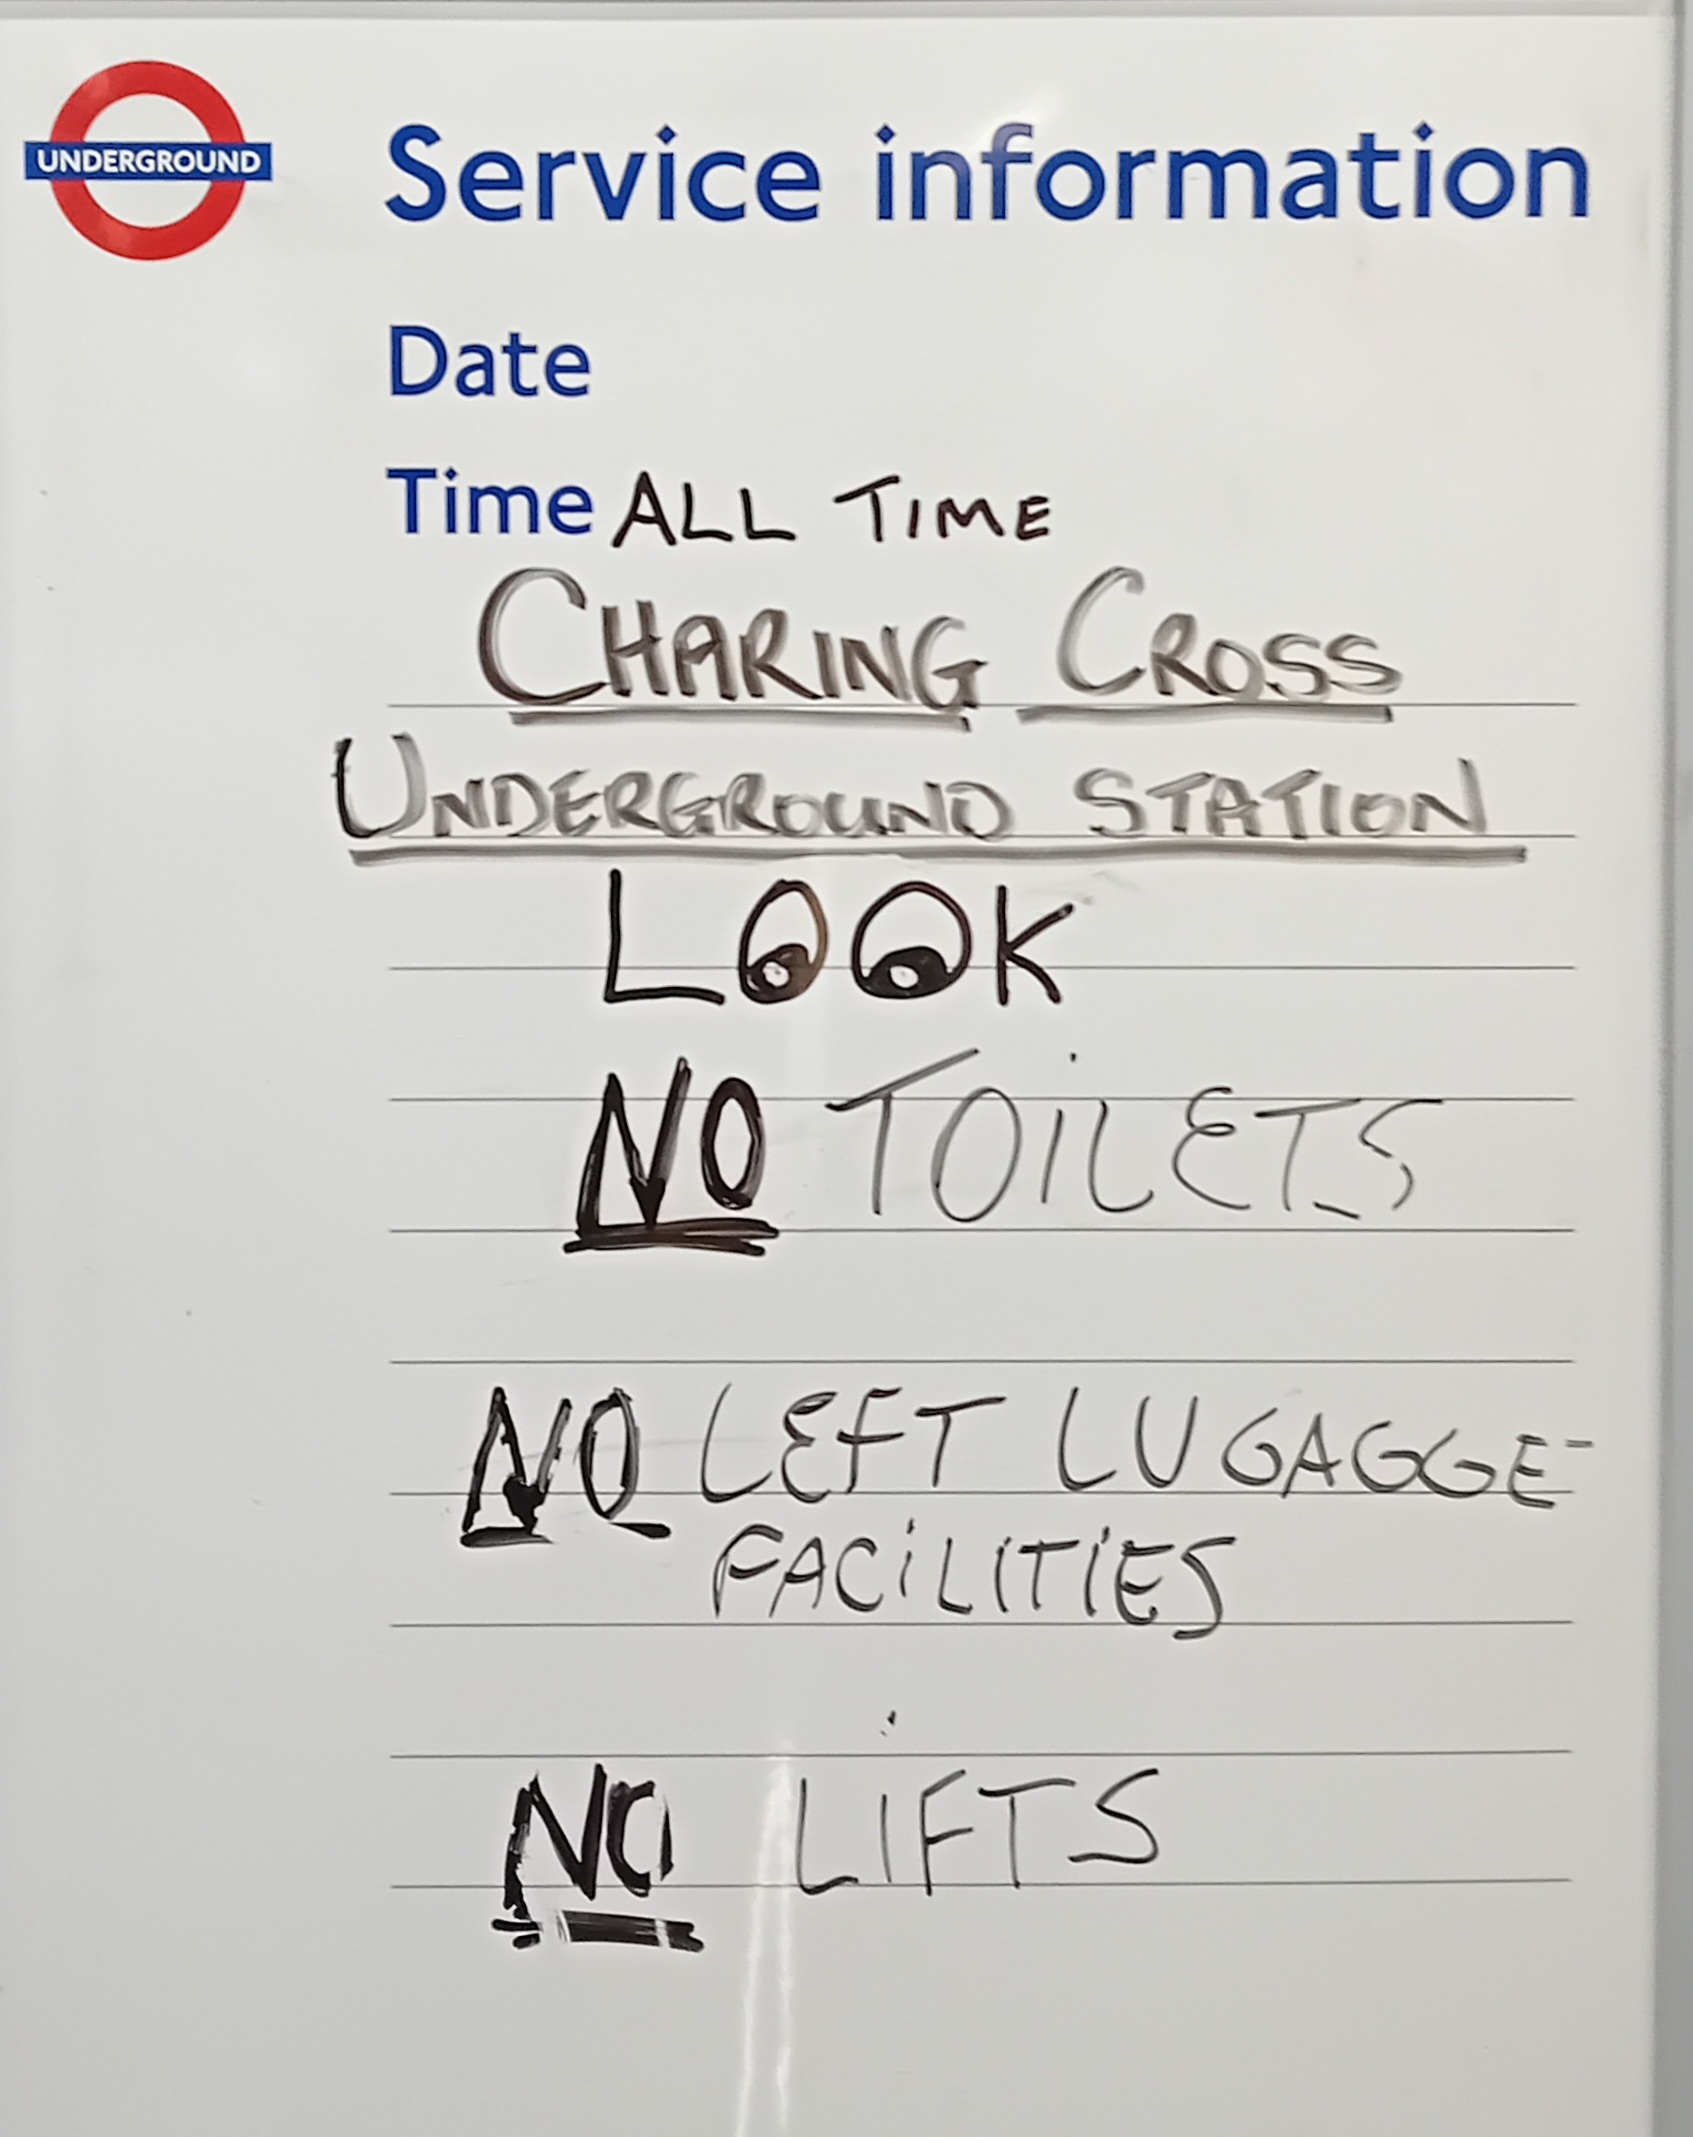 UNDERGROUND
Service information
Date
Time ALL TIME
CHARING CROSS
UNDERGROUND STATION
LOOK
NO TOiLETS
NO LEFT LUGAGGE-
FACiLITIES
NO LiFTS